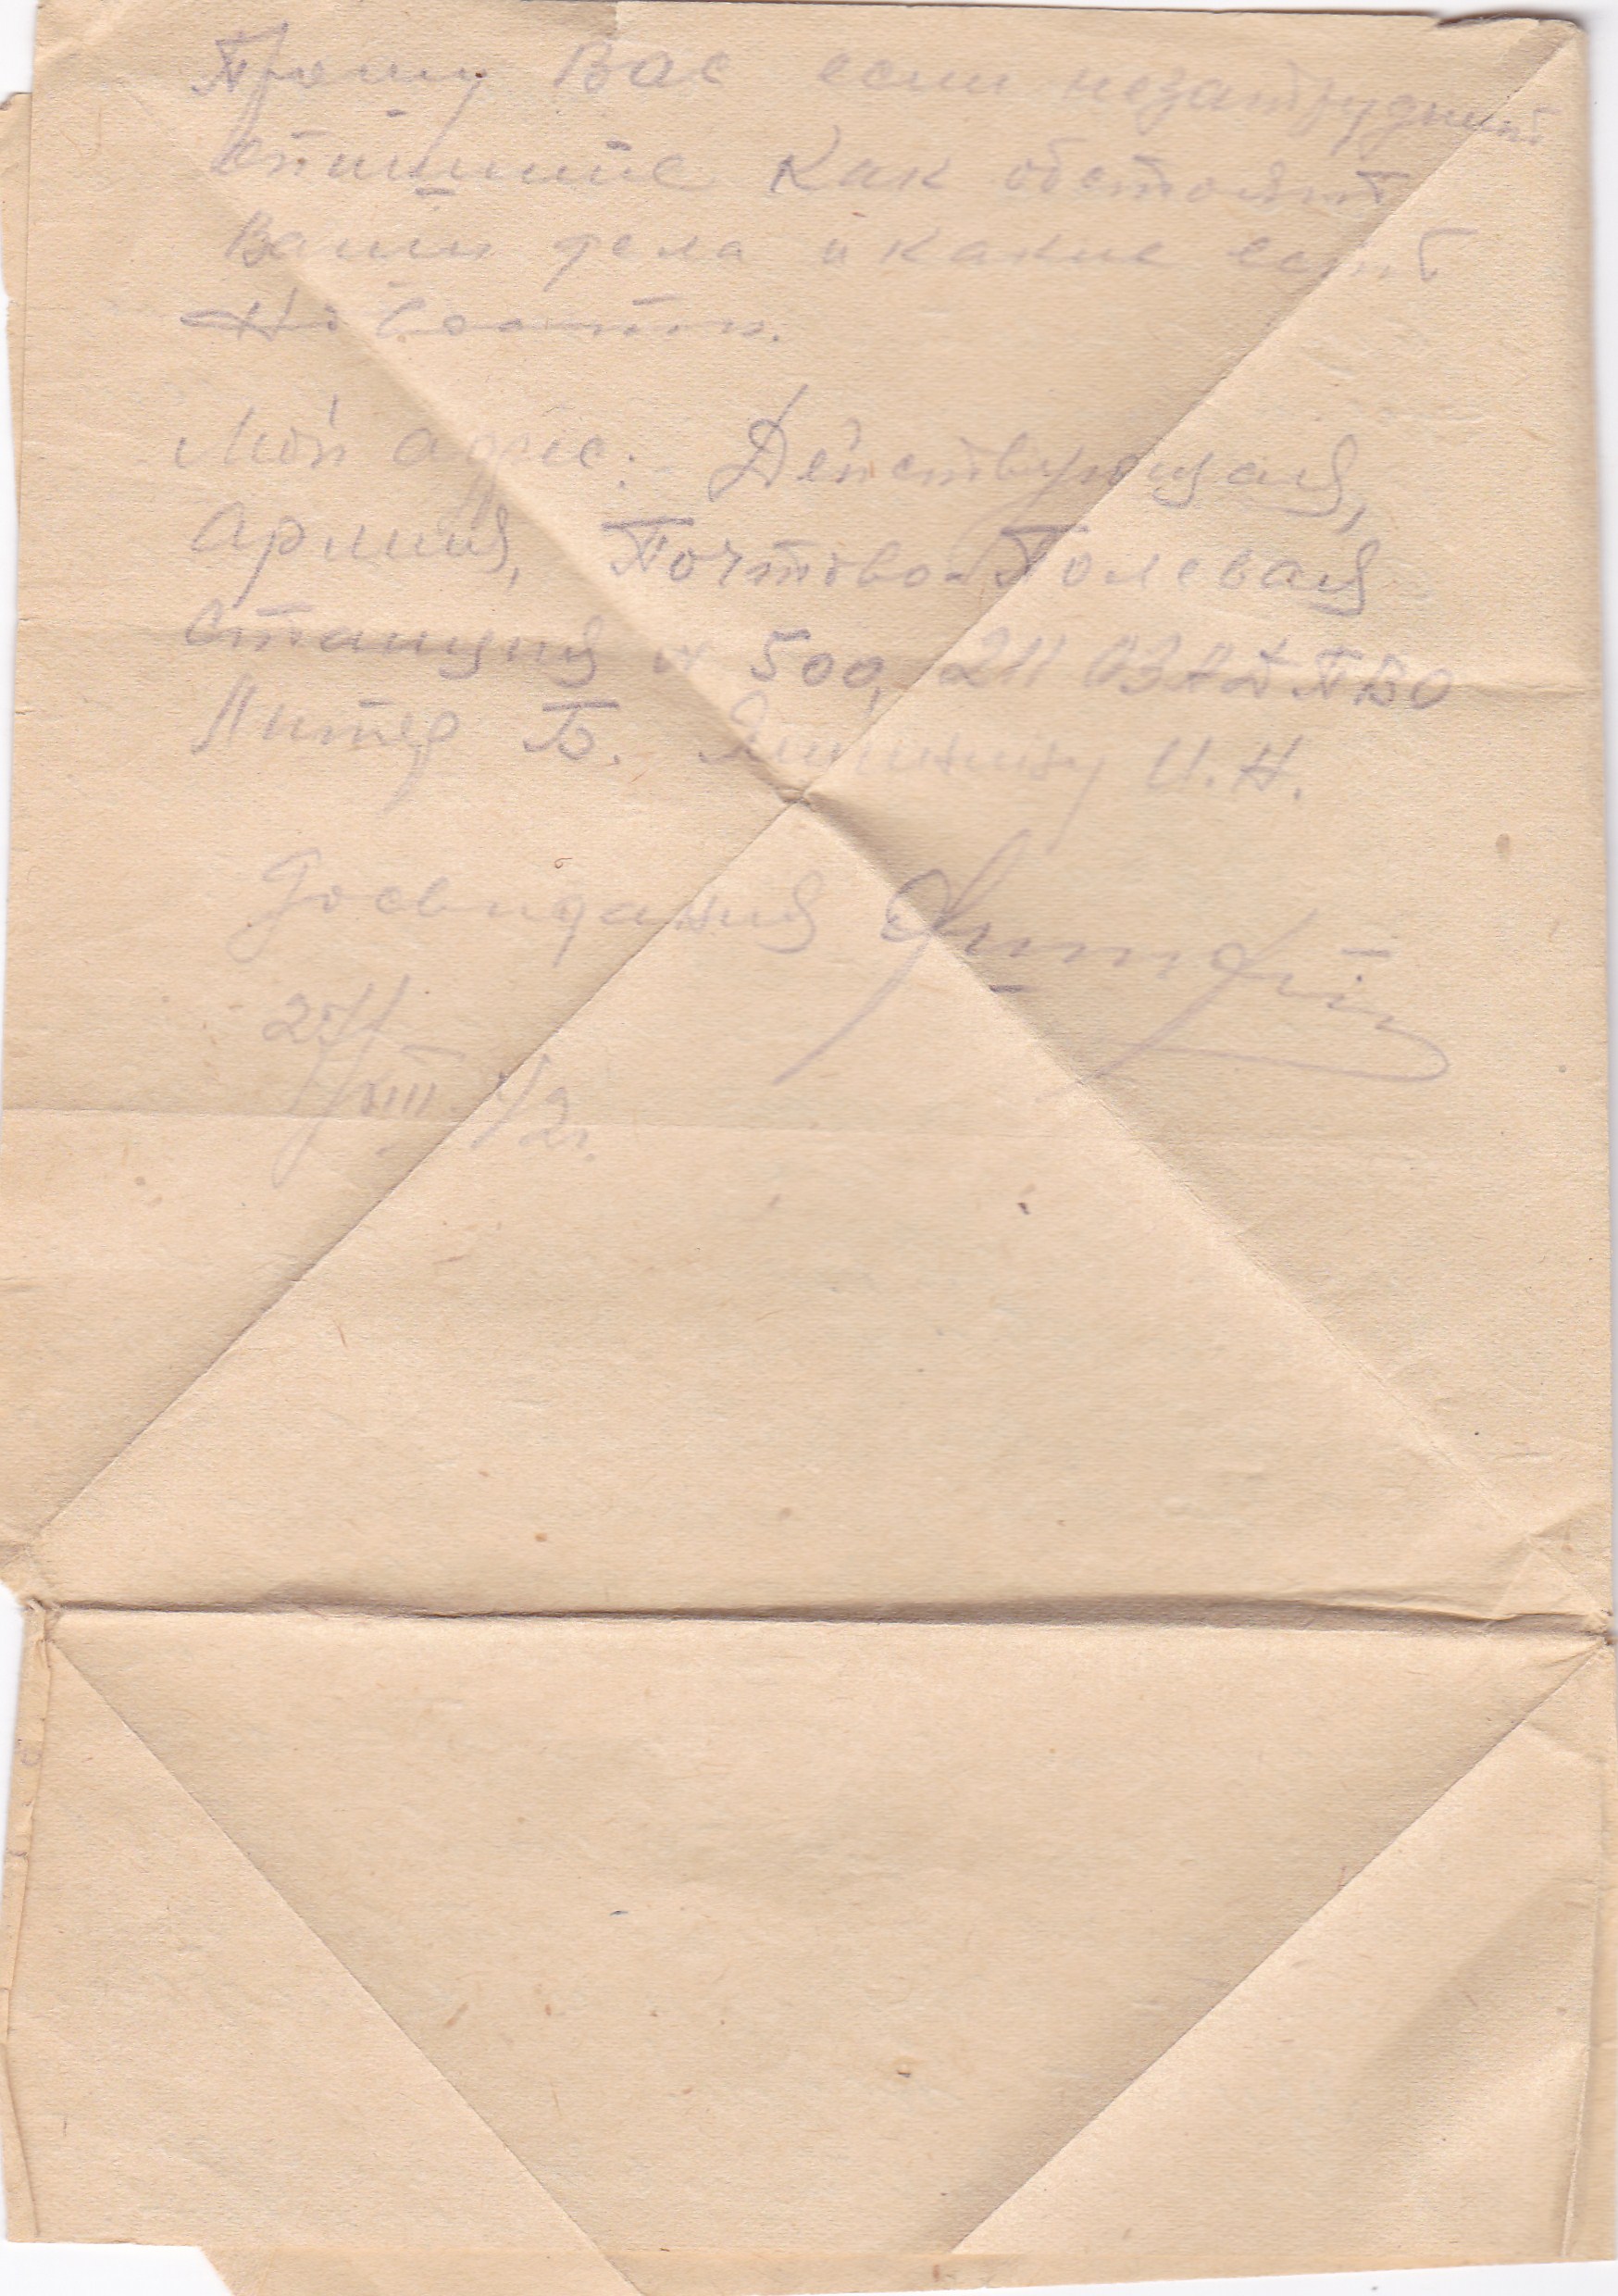 Прошу Вас если незатруднит
опишите как обстоят
Ваши дела и какие есть
новости.
Мой адрес. Действующая,
Армия, Почтово-Полевая
станция № 500, 211 ОЗАД ПВО
Литер Б. И.Н.
Досвидания
25/VIII 42г.